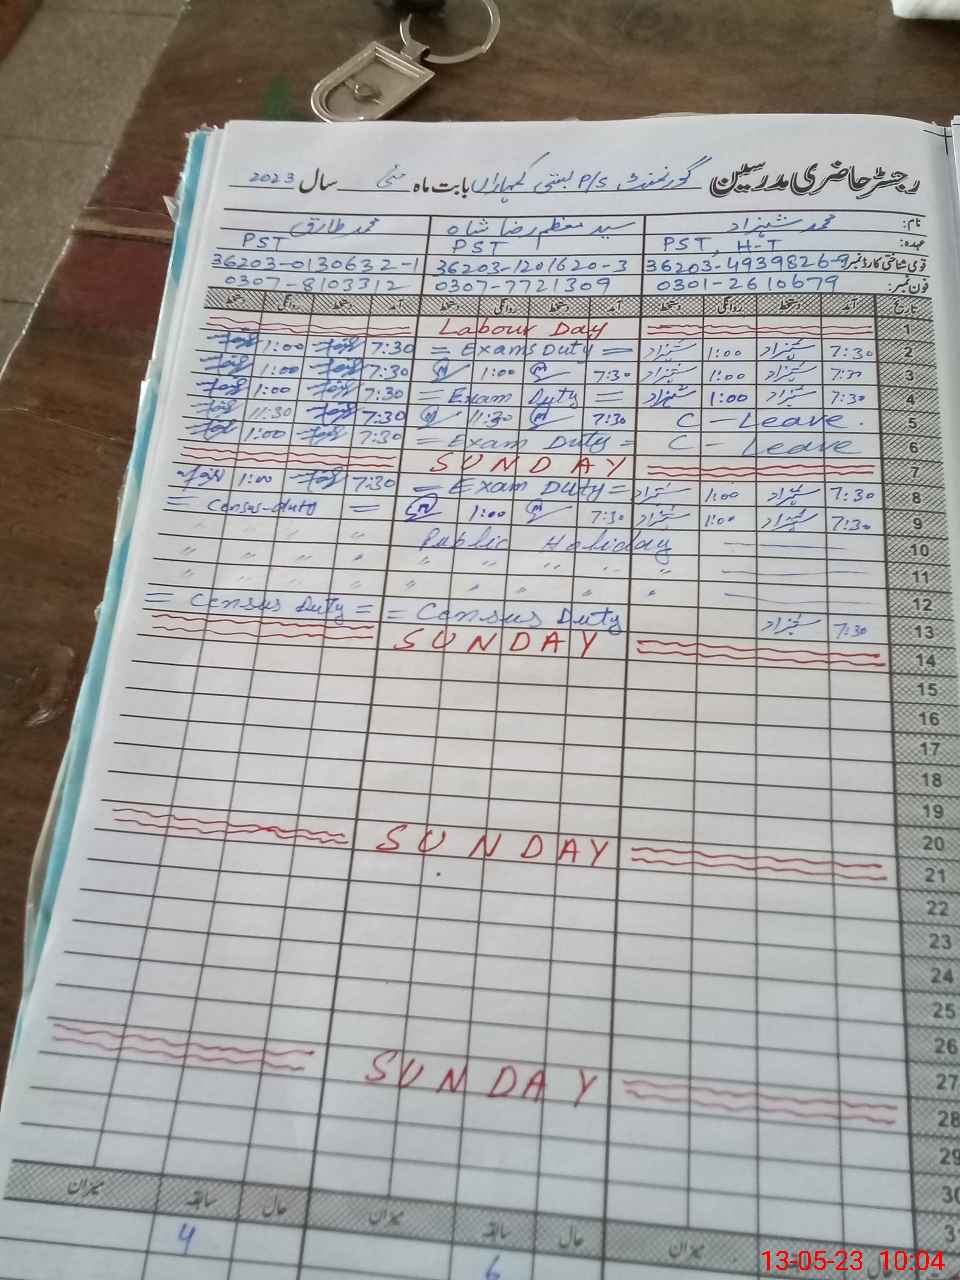 رجسٹر حاضری مدرسین گورنمنٹ P/S بستی کمہاراں بابت ماہ مئی سال 2023
نام: محمد شہزاد سید معظم رضا شاہ محمد طارق
عہدہ: PST, H-T PST PST
قومی شناختی کارڈ نمبر 36203-4939826-9 36203-1201620-3 36203-0130632-1
فون نمبر: 0301-2610679 0307-7721309 0307-8103312
تاریخ آمد دستخط روانگی دستخط آمد دستخط روانگی دستخط آمد دستخط روانگی دستخط
1 Labour Day
2 7:30 شہزاد 1:00 شہزاد = Exams Duty = 7:30 1:00
3 7:30 شہزاد 1:00 شہزاد 7:30 1:00 7:30 1:00
4 7:30 شہزاد 1:00 شہزاد = Exam Duty = 7:30 1:00
5 C - Leave. 7:30 11:30 7:30 11:30
6 C - Leave = Exam Duty = 7:30 1:00
7 SUNDAY
8 7:30 شہزاد 1:00 شہزاد = Exam Duty = 7:30 1:00
9 7:30 شہزاد 1:00 شہزاد 7:30 1:00 = Census-Duty =
10 Public Holiday " " " "
11 " " " " " " " " "
12 " " " " " " " " "
13 7:30 شہزاد = Census Duty = Census Duty =
14 SUNDAY
15
16
17
18
19
20
21 SUNDAY
22
23
24
25
26
27
28 SUNDAY
29
30
31
حال میزان حال سابقہ میزان حال سابقہ میزان
6 4
13-05-23 10:04